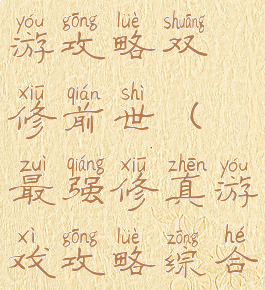 yóu gōng lüè shuāng
游攻略双
xiū qián shì
修前世（
zuì qiáng xiū zhēn yóu
最强修真游
xì gōng lüè zōng hé
戏攻略综合